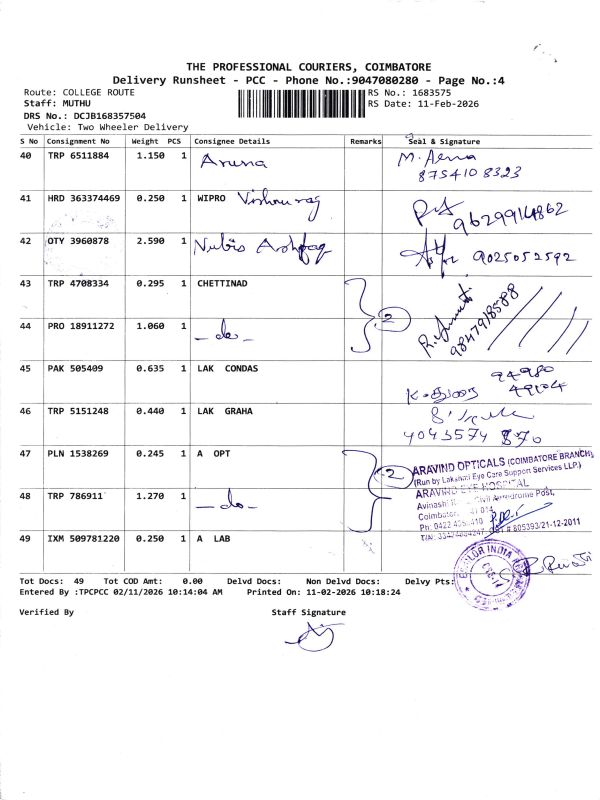 THE PROFESSIONAL COURIERS, COIMBATORE
Delivery Runsheet - PCC - Phone No.:9047080280 - Page No.:4
Route: COLLEGE ROUTE
RS No.: 1683575
Staff: MUTHU
RS Date: 11-Feb-2026
DRS No.: DCJB168357504
Vehicle: Two Wheeler Delivery
S No Consignment No Weight PCS Consignee Details Remarks Seal & Signature
40 TRP 6511884 1.150 1 Aruna M.
8754108323
41 HRD 363374469 0.250 1 WIPRO
9629914862
42 OTY 3960878 2.590 1 9025052592
43 TRP 4708334 0.295 1 CHETTINAD
2
9847918588
44 PRO 18911272 1.060 1 - do -
45 PAK 505409 0.635 1 LAK CONDAS
94980
49104
46 TRP 5151248 0.440 1 LAK GRAHA
4043574 870
47 PLN 1538269 0.245 1 A OPT
2
ARAVIND OPTICALS (COIMBATORE BRANCH)
(Run by Lakshmi Eye Care Support Services LLP.)
ARAVIND EYE HOSPITAL
48 TRP 786911 1.270 1 - do -
Avinashi Civil Aerodrome Post,
Coimbatore 014
Ph: 0422
TIN: 805393/21-12-2011
49 IXM 509781220 0.250 1 A LAB
INDIA
Tot Docs: 49 Tot COD Amt: 0.00 Delvd Docs: Non Delvd Docs: Delvy Pts:
Entered By :TPCPCC 02/11/2026 10:14:04 AM Printed On: 11-02-2026 10:18:24
Verified By Staff Signature